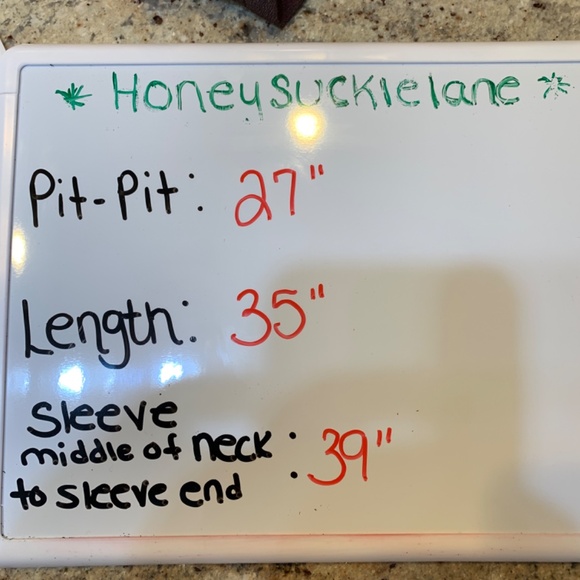 * Honeysucklelane *
Pit-Pit: 27"
Length: 35"
Sleeve
middle of neck : 39"
to sleeve end